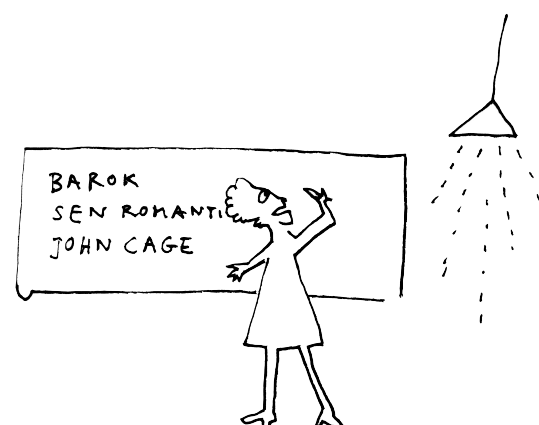 BAROK
SEN ROMANTI
JOHN CAGE